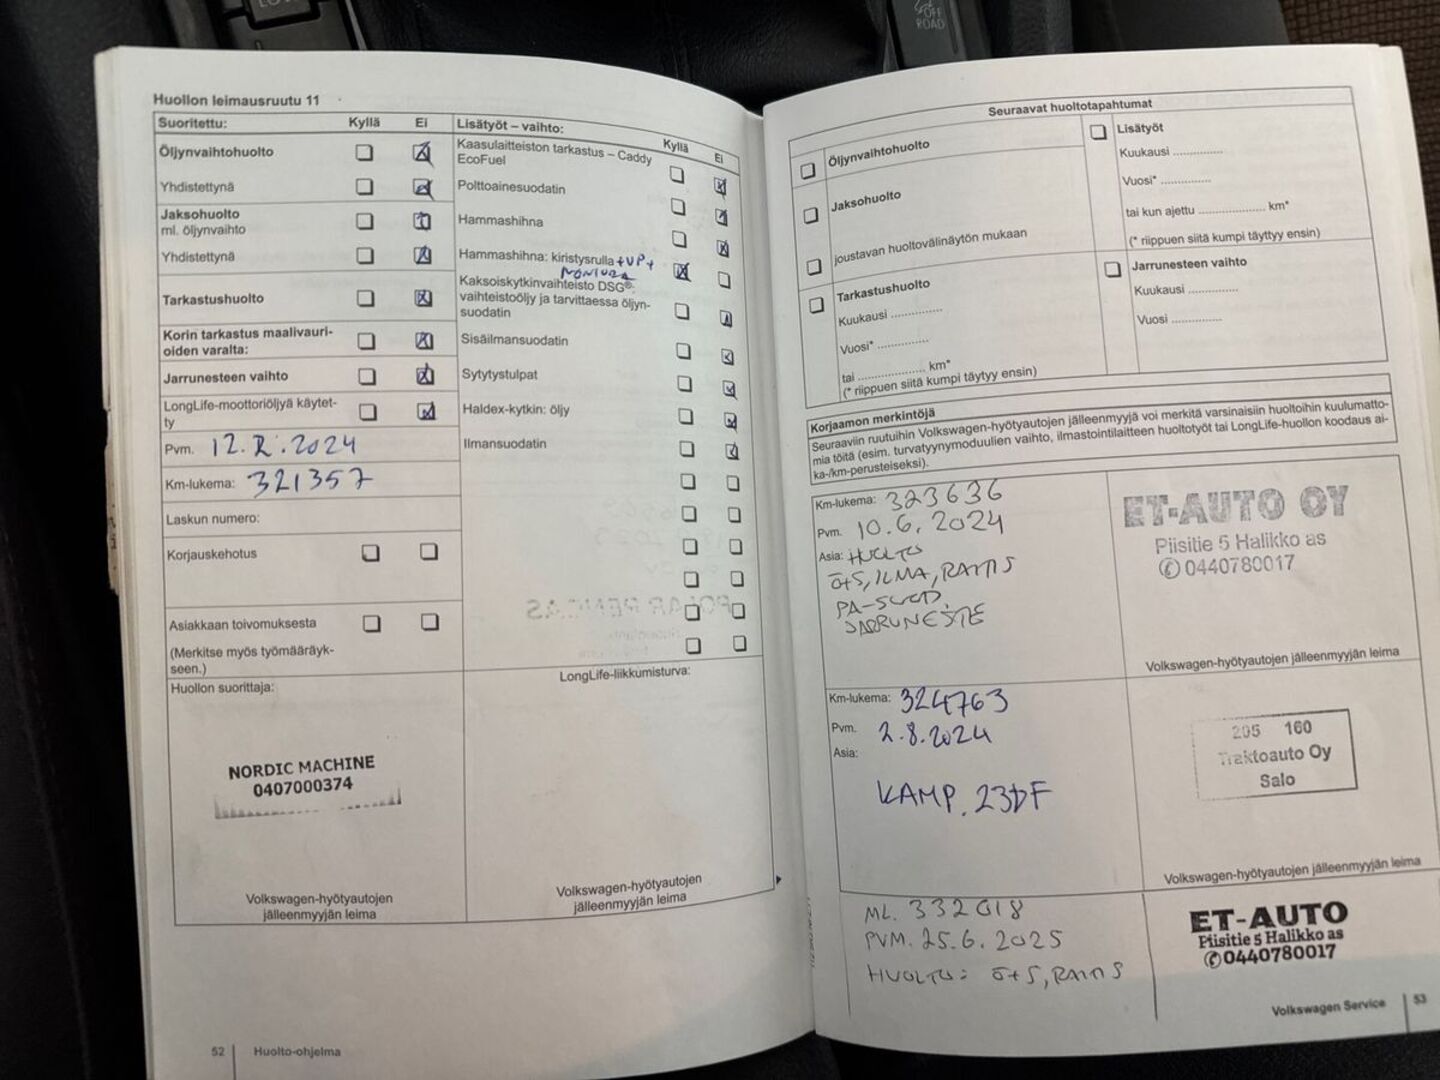 OFF
ROAD
Huollon leimausruutu 11
Suoritettu: Kyllä Ei
Öljynvaihtohuolto
Yhdistettynä
Jaksohuolto
ml. öljynvaihto
Yhdistettynä
Tarkastushuolto
Korin tarkastus maalivauri-
oiden varalta:
Jarrunesteen vaihto
LongLife-moottoriöljyä käytet-
ty
Pvm. 12.2.2024
Km-lukema: 321357
Laskun numero:
Korjauskehotus
Asiakkaan toivomuksesta
(Merkitse myös työmääräyk-
seen.)
Huollon suorittaja:
NORDIC MACHINE
0407000374
Volkswagen-hyötyautojen
jälleenmyyjän leima
Lisätyöt – vaihto: Kyllä Ei
Kaasulaitteiston tarkastus – Caddy
EcoFuel
Polttoainesuodatin
Hammashihna
Hammashihna: kiristysrulla +VP+
MONIURA
Kaksoiskytkinvaihteisto DSG®:
vaihteistoöljy ja tarvittaessa öljyn-
suodatin
Sisäilmansuodatin
Sytytystulpat
Haldex-kytkin: öljy
Ilmansuodatin
LongLife-liikkumisturva:
Volkswagen-hyötyautojen
jälleenmyyjän leima
52 Huolto-ohjelma
Seuraavat huoltotapahtumat
Öljynvaihtohuolto
Jaksohuolto
joustavan huoltovälinäytön mukaan
Tarkastushuolto
Kuukausi ...............
Vuosi* ...............
tai .................... km*
(* riippuen siitä kumpi täytyy ensin)
Lisätyöt
Kuukausi ...............
Vuosi* ...............
tai kun ajettu .................... km*
(* riippuen siitä kumpi täyttyy ensin)
Jarrunesteen vaihto
Kuukausi ...............
Vuosi ...............
Korjaamon merkintöjä
Seuraaviin ruutuihin Volkswagen-hyötyautojen jälleenmyyjä voi merkitä varsinaisiin huoltoihin kuulumatto-
mia töitä (esim. turvatyynymoduulien vaihto, ilmastointilaitteen huoltotyöt tai LongLife-huollon koodaus ai-
ka-/km-perusteiseksi).
Km-lukema: 323636
Pvm. 10.6.2024
Asia: HUOLTO
Ö+S, ILMA, RAITIS
PA-SUOD,
JARRUNESTE
ET-AUTO OY
Piisitie 5 Halikko as
✆ 0440780017
Volkswagen-hyötyautojen jälleenmyyjän leima
Km-lukema: 324763
Pvm. 2.8.2024
Asia:
KAMP. 23DF
205 160
Traktoauto Oy
Salo
Volkswagen-hyötyautojen jälleenmyyjän leima
ML. 332018
PVM. 25.6.2025
HUOLTO: Ö+S, RAITIS
ET-AUTO
Piisitie 5 Halikko as
✆0440780017
Volkswagen Service 53